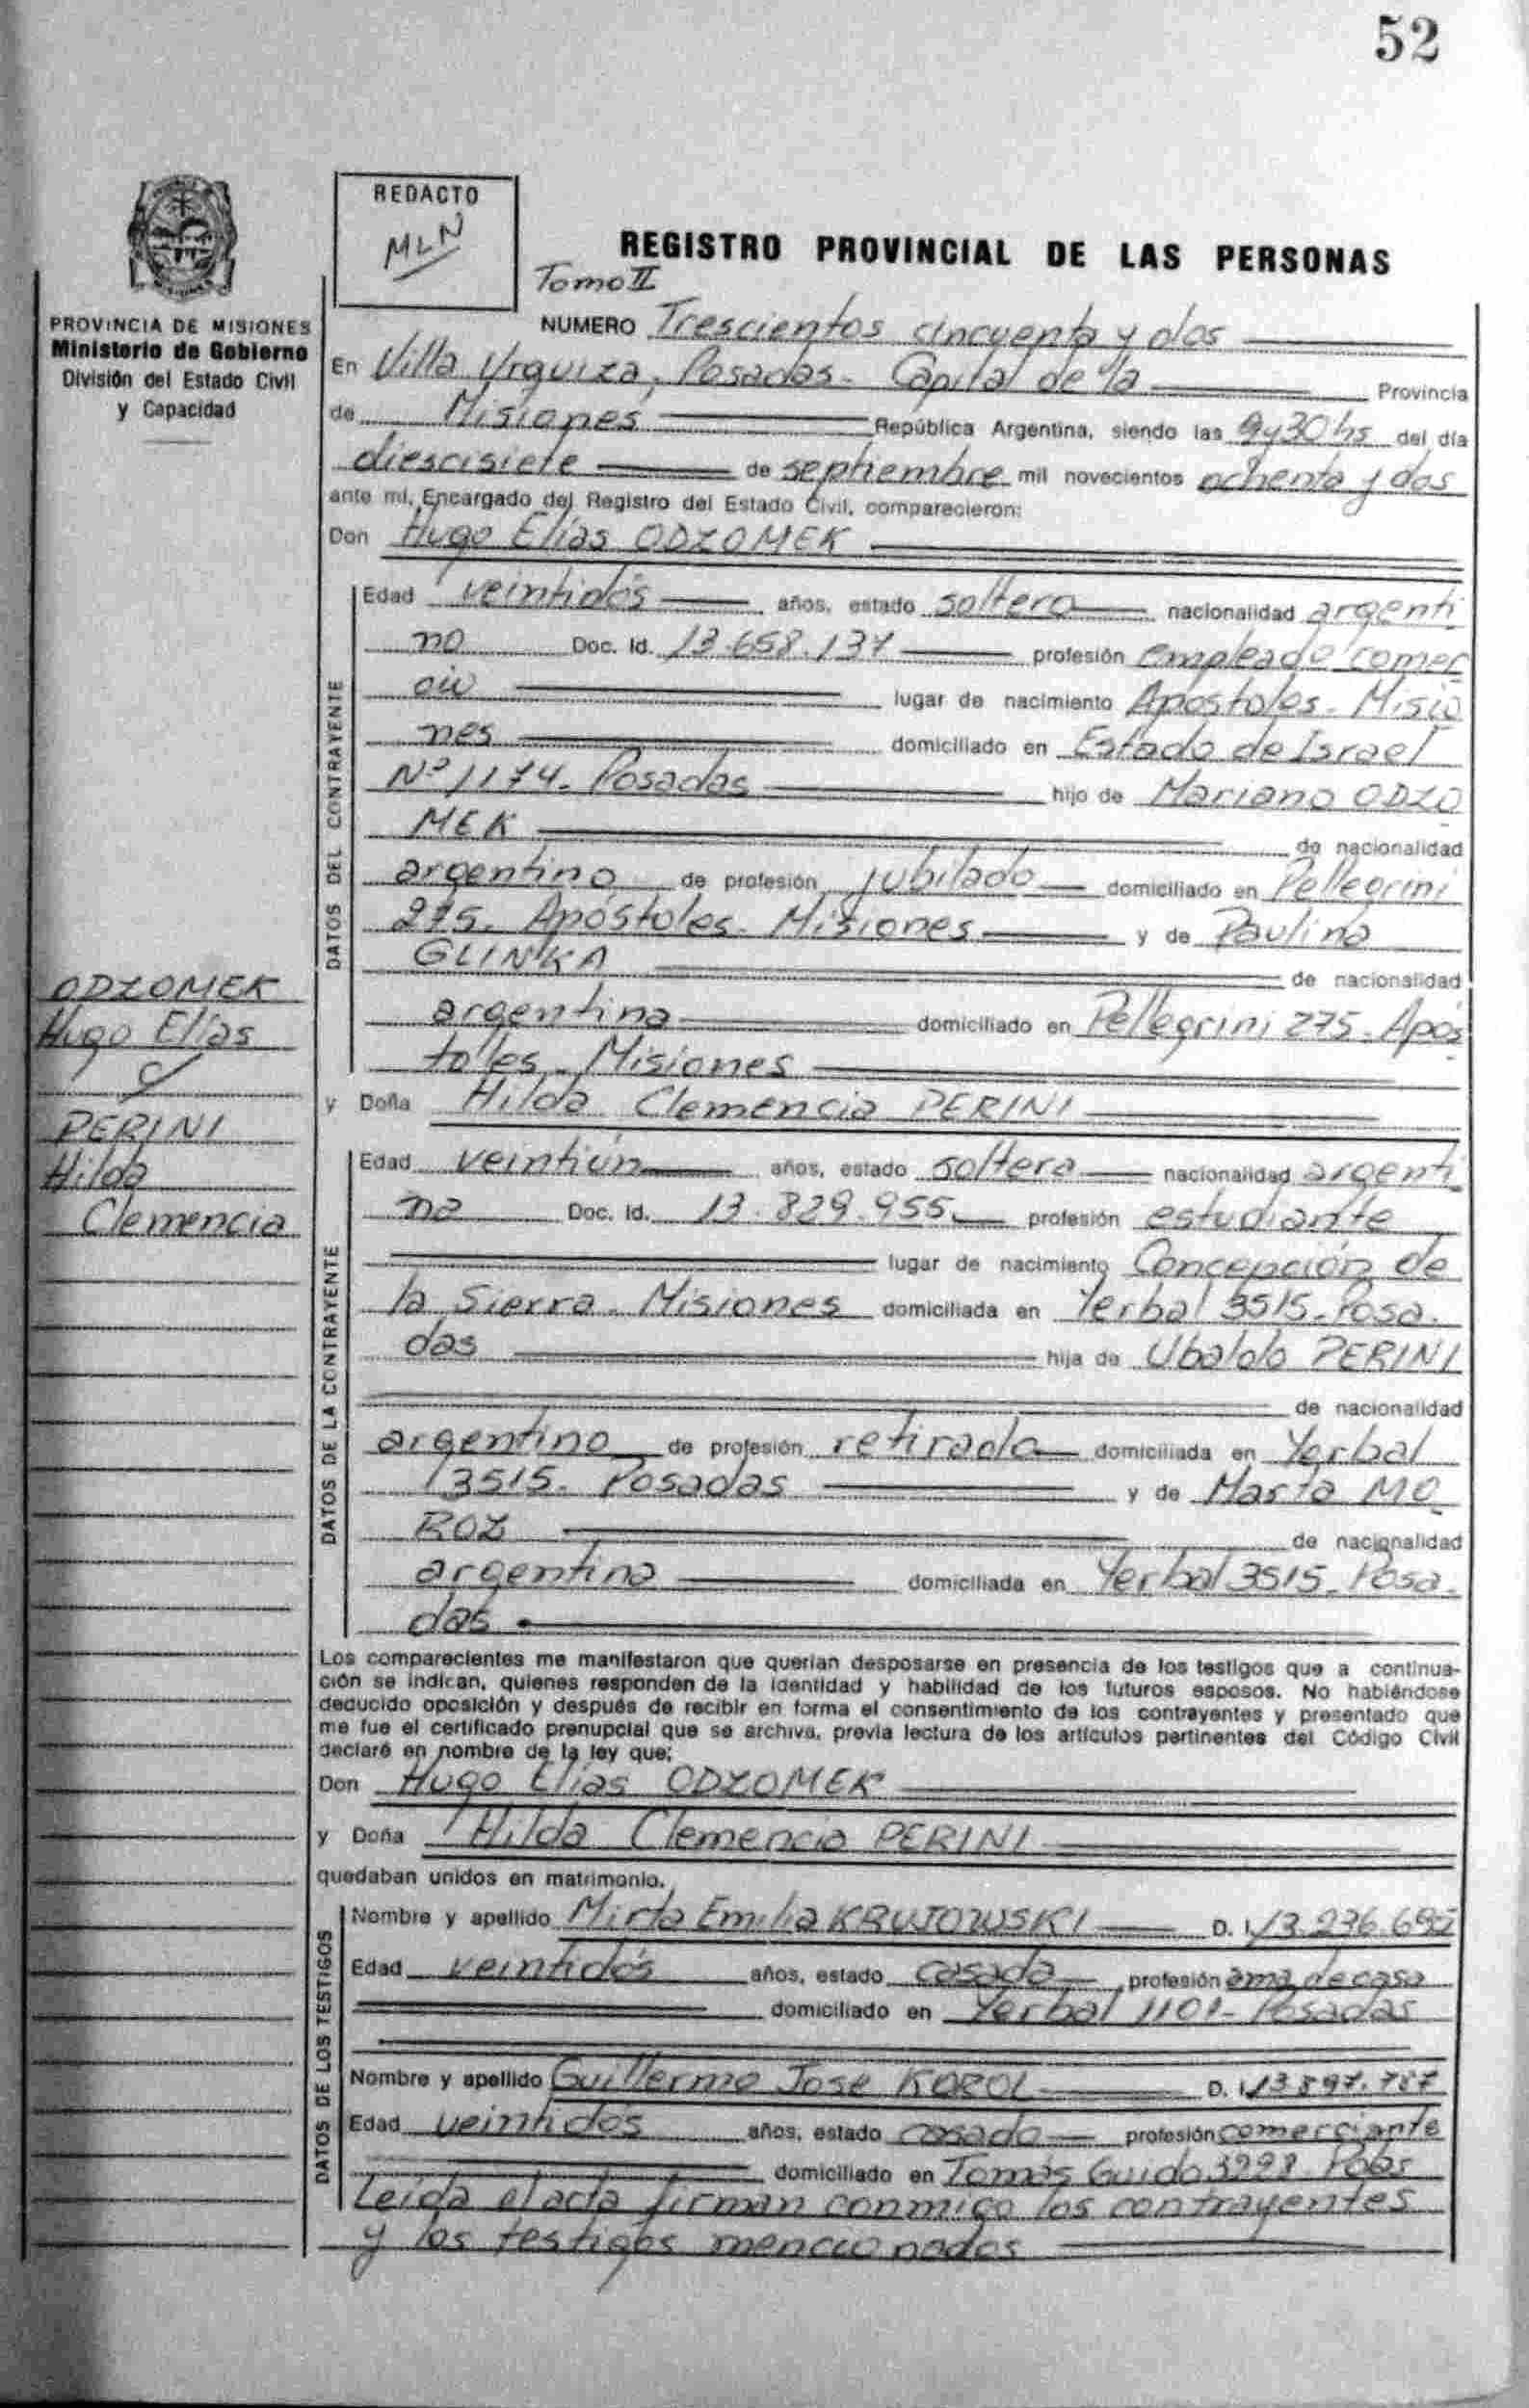 52
REDACTO
MLN
REGISTRO PROVINCIAL DE LAS PERSONAS
Tomo II
PROVINCIA DE MISIONES
Ministerio de Gobierno
División del Estado Civil
y Capacidad
NUMERO Trescientos cincuenta y dos
En Villa Urquiza, Posadas - Capital de la Provincia
de Misiones República Argentina, siendo las 9y30 hs del día
diescisiete de septiembre mil novecientos ochenta y dos
ante mí, Encargado del Registro del Estado Civil, comparecieron:
Don Hugo Elías ODZOMEK
DATOS DEL CONTRAYENTE
Edad veintidós años, estado soltero nacionalidad argenti
no Doc. Id. 13.658.137 profesión empleado comer
cio lugar de nacimiento Apostoles - Misio
nes domiciliado en Estado de Israel
Nº 1174. Posadas hijo de Mariano ODZO
MEK de nacionalidad
argentino de profesión jubilado domiciliado en Pellegrini
275. Apóstoles - Misiones y de Paulina
GLINKA de nacionalidad
argentina domiciliado en Pellegrini 275 - Após
toles - Misiones
ODZOMEK
Hugo Elías
y
PERINI
Hilda
Clemencia
y Doña Hilda Clemencia PERINI
DATOS DE LA CONTRAYENTE
Edad veintiún años, estado soltera nacionalidad argenti
na Doc. Id. 13.829.955. profesión estudiante
lugar de nacimiento Concepción de
la Sierra - Misiones domiciliada en Yerbal 3515 - Posa.
das hija de Ubaldo PERINI
de nacionalidad
argentino de profesión retirado domiciliada en Yerbal
3515. Posadas y de Marta MO
ROZ de nacionalidad
argentina domiciliada en Yerbal 3515 - Posa.
das
Los comparecientes me manifestaron que querían desposarse en presencia de los testigos que a continua-
ción se indican, quienes responden de la identidad y habilidad de los futuros esposos. No habiéndose
deducido oposición y después de recibir en forma el consentimiento de los contrayentes y presentado que
me fue el certificado prenupcial que se archiva, previa lectura de los artículos pertinentes del Código Civil
declaré en nombre de la ley que;
Don Hugo Elías ODZOMEK
y Doña Hilda Clemencia PERINI
quedaban unidos en matrimonio.
DATOS DE LOS TESTIGOS
Nombre y apellido Mirta Emilia KRUJOWSKI D. I.
Edad veintidós años, estado casada profesión ama de casa
domiciliado en Yerbal 1101 - Posadas
Nombre y apellido Guillermo Jose KOROL D. I. 13.897.787
Edad veintidós años, estado casado profesión comerciante
domiciliado en Tomás Guido
Leída el acta firman conmigo los contrayentes
y los testigos mencionados